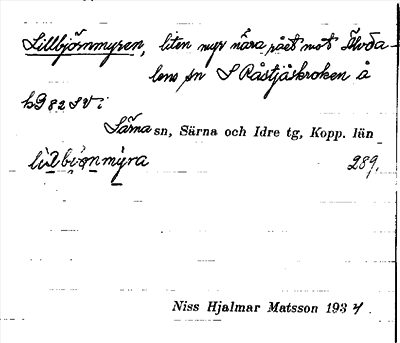 Lillbjörnmyren, liten myr nära rået mot Älvda-
lens sn S Råstjäskroken å
kg 82 SV i
Särna sn, Särna och Idre tg, Kopp. län
289.
Niss Hjalmar Matsson 1934.